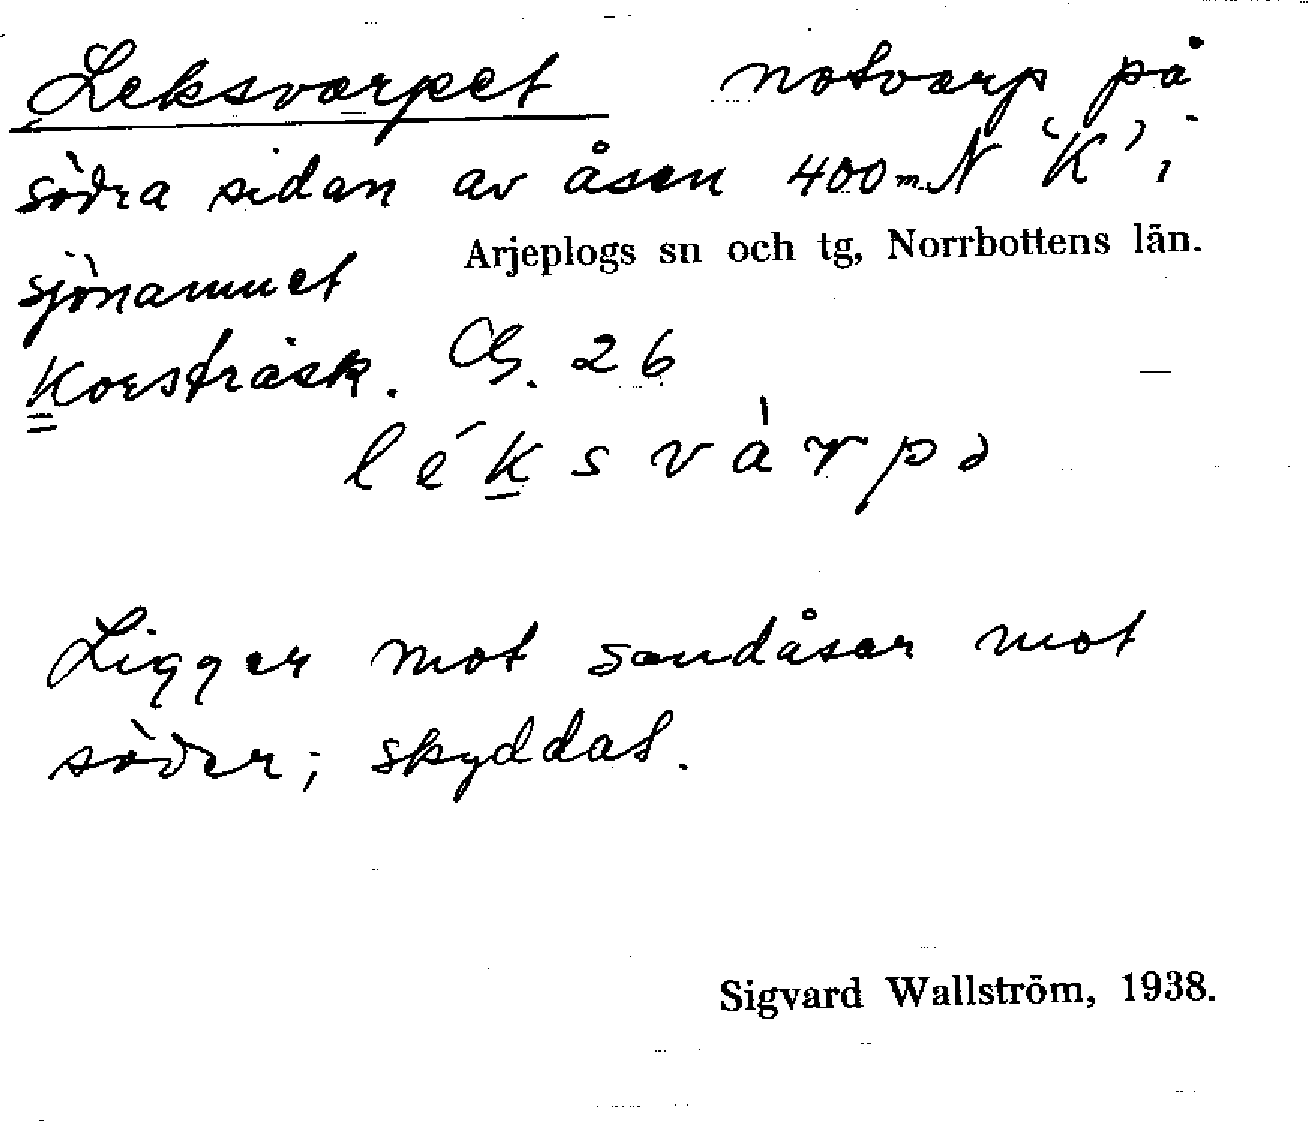 Leksvarpet notvarp på
södra sidan av åsen 400 m N 'K' i
sjönamnet Arjeplogs sn och tg, Norrbottens län.
Korsträsk. 26
léksvàrpə
Ligger mot sandåsar mot
söder; skyddat.
Sigvard Wallström, 1938.